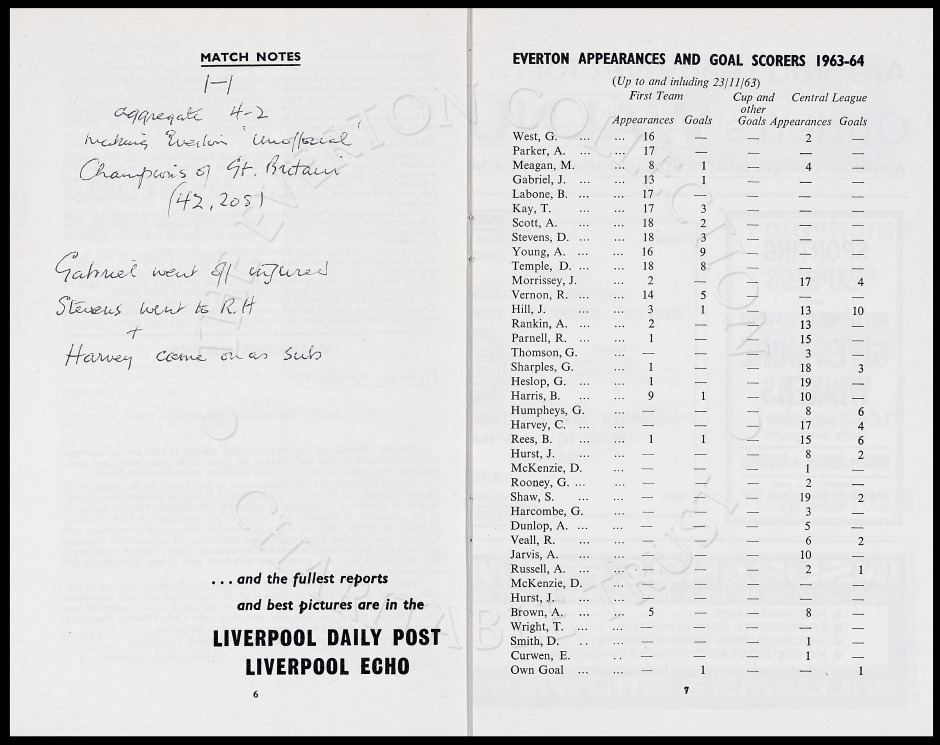 MATCH NOTES
1-1
aggregate 4-2
making Everton 'unofficial'
Champions of Gt. Britain
(42,205)
Gabriel went off injured
Stevens went to R.H
+
Harvey came on as sub
... and the fullest reports
and best pictures are in the
LIVERPOOL DAILY POST
LIVERPOOL ECHO
6
EVERTON APPEARANCES AND GOAL SCORERS 1963-64
(Up to and inluding 23/11/63)
First Team Cup and Central League
other
Appearances Goals Goals Appearances Goals
West, G. ... ... 16 — — 2 —
Parker, A. ... ... 17 — — — —
Meagan, M. ... 8 1 — 4 —
Gabriel, J. ... ... 13 1 — — —
Labone, B. ... ... 17 — — — —
Kay, T. ... ... 17 3 — — —
Scott, A. ... ... 18 2 — — —
Stevens, D. ... ... 18 3 — — —
Young, A. ... ... 16 9 — — —
Temple, D. ... ... 18 8 — — —
Morrissey, J. ... 2 — — 17 4
Vernon, R. ... ... 14 5 — — —
Hill, J. ... ... 3 1 — 13 10
Rankin, A. ... ... 2 — — 13 —
Parnell, R. ... ... 1 — — 15 —
Thomson, G. ... — — — 3 —
Sharples, G. ... 1 — — 18 3
Heslop, G. ... ... 1 — — 19 —
Harris, B. ... ... 9 1 — 10 —
Humpheys, G. ... — — — 8 6
Harvey, C. ... ... — — — 17 4
Rees, B. ... ... 1 1 — 15 6
Hurst, J. ... ... — — — 8 2
McKenzie, D. ... — — — 1 —
Rooney, G. ... ... — — — 2 —
Shaw, S. ... ... — — — 19 2
Harcombe, G. ... — — — 3 —
Dunlop, A. ... ... — — — 5 —
Veall, R. ... ... — — — 6 2
Jarvis, A. ... ... — — — 10 —
Russell, A. ... ... — — — 2 1
McKenzie, D. ... — — — — —
Hurst, J. ... ... — — — — —
Brown, A. ... ... 5 — — 8 —
Wright, T. ... ... — — — — —
Smith, D. .. ... — — — 1 —
Curwen, E. .. — — — 1 —
Own Goal ... ... — 1 — — 1
7
THE EVERTON COLLECTION
CHARITABLE TRUST